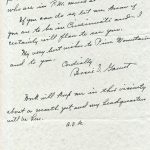 who are in T.W. must a
If you can do so, let me know if
you are to be in Cincinnati and I
certainly will plan to see you.
My very best wishes to Pine Mountain
and to you.
Cordially
Bessie S. Garnet
Work will keep me in this vicinity
about a month yet and my headquarters
will be here.